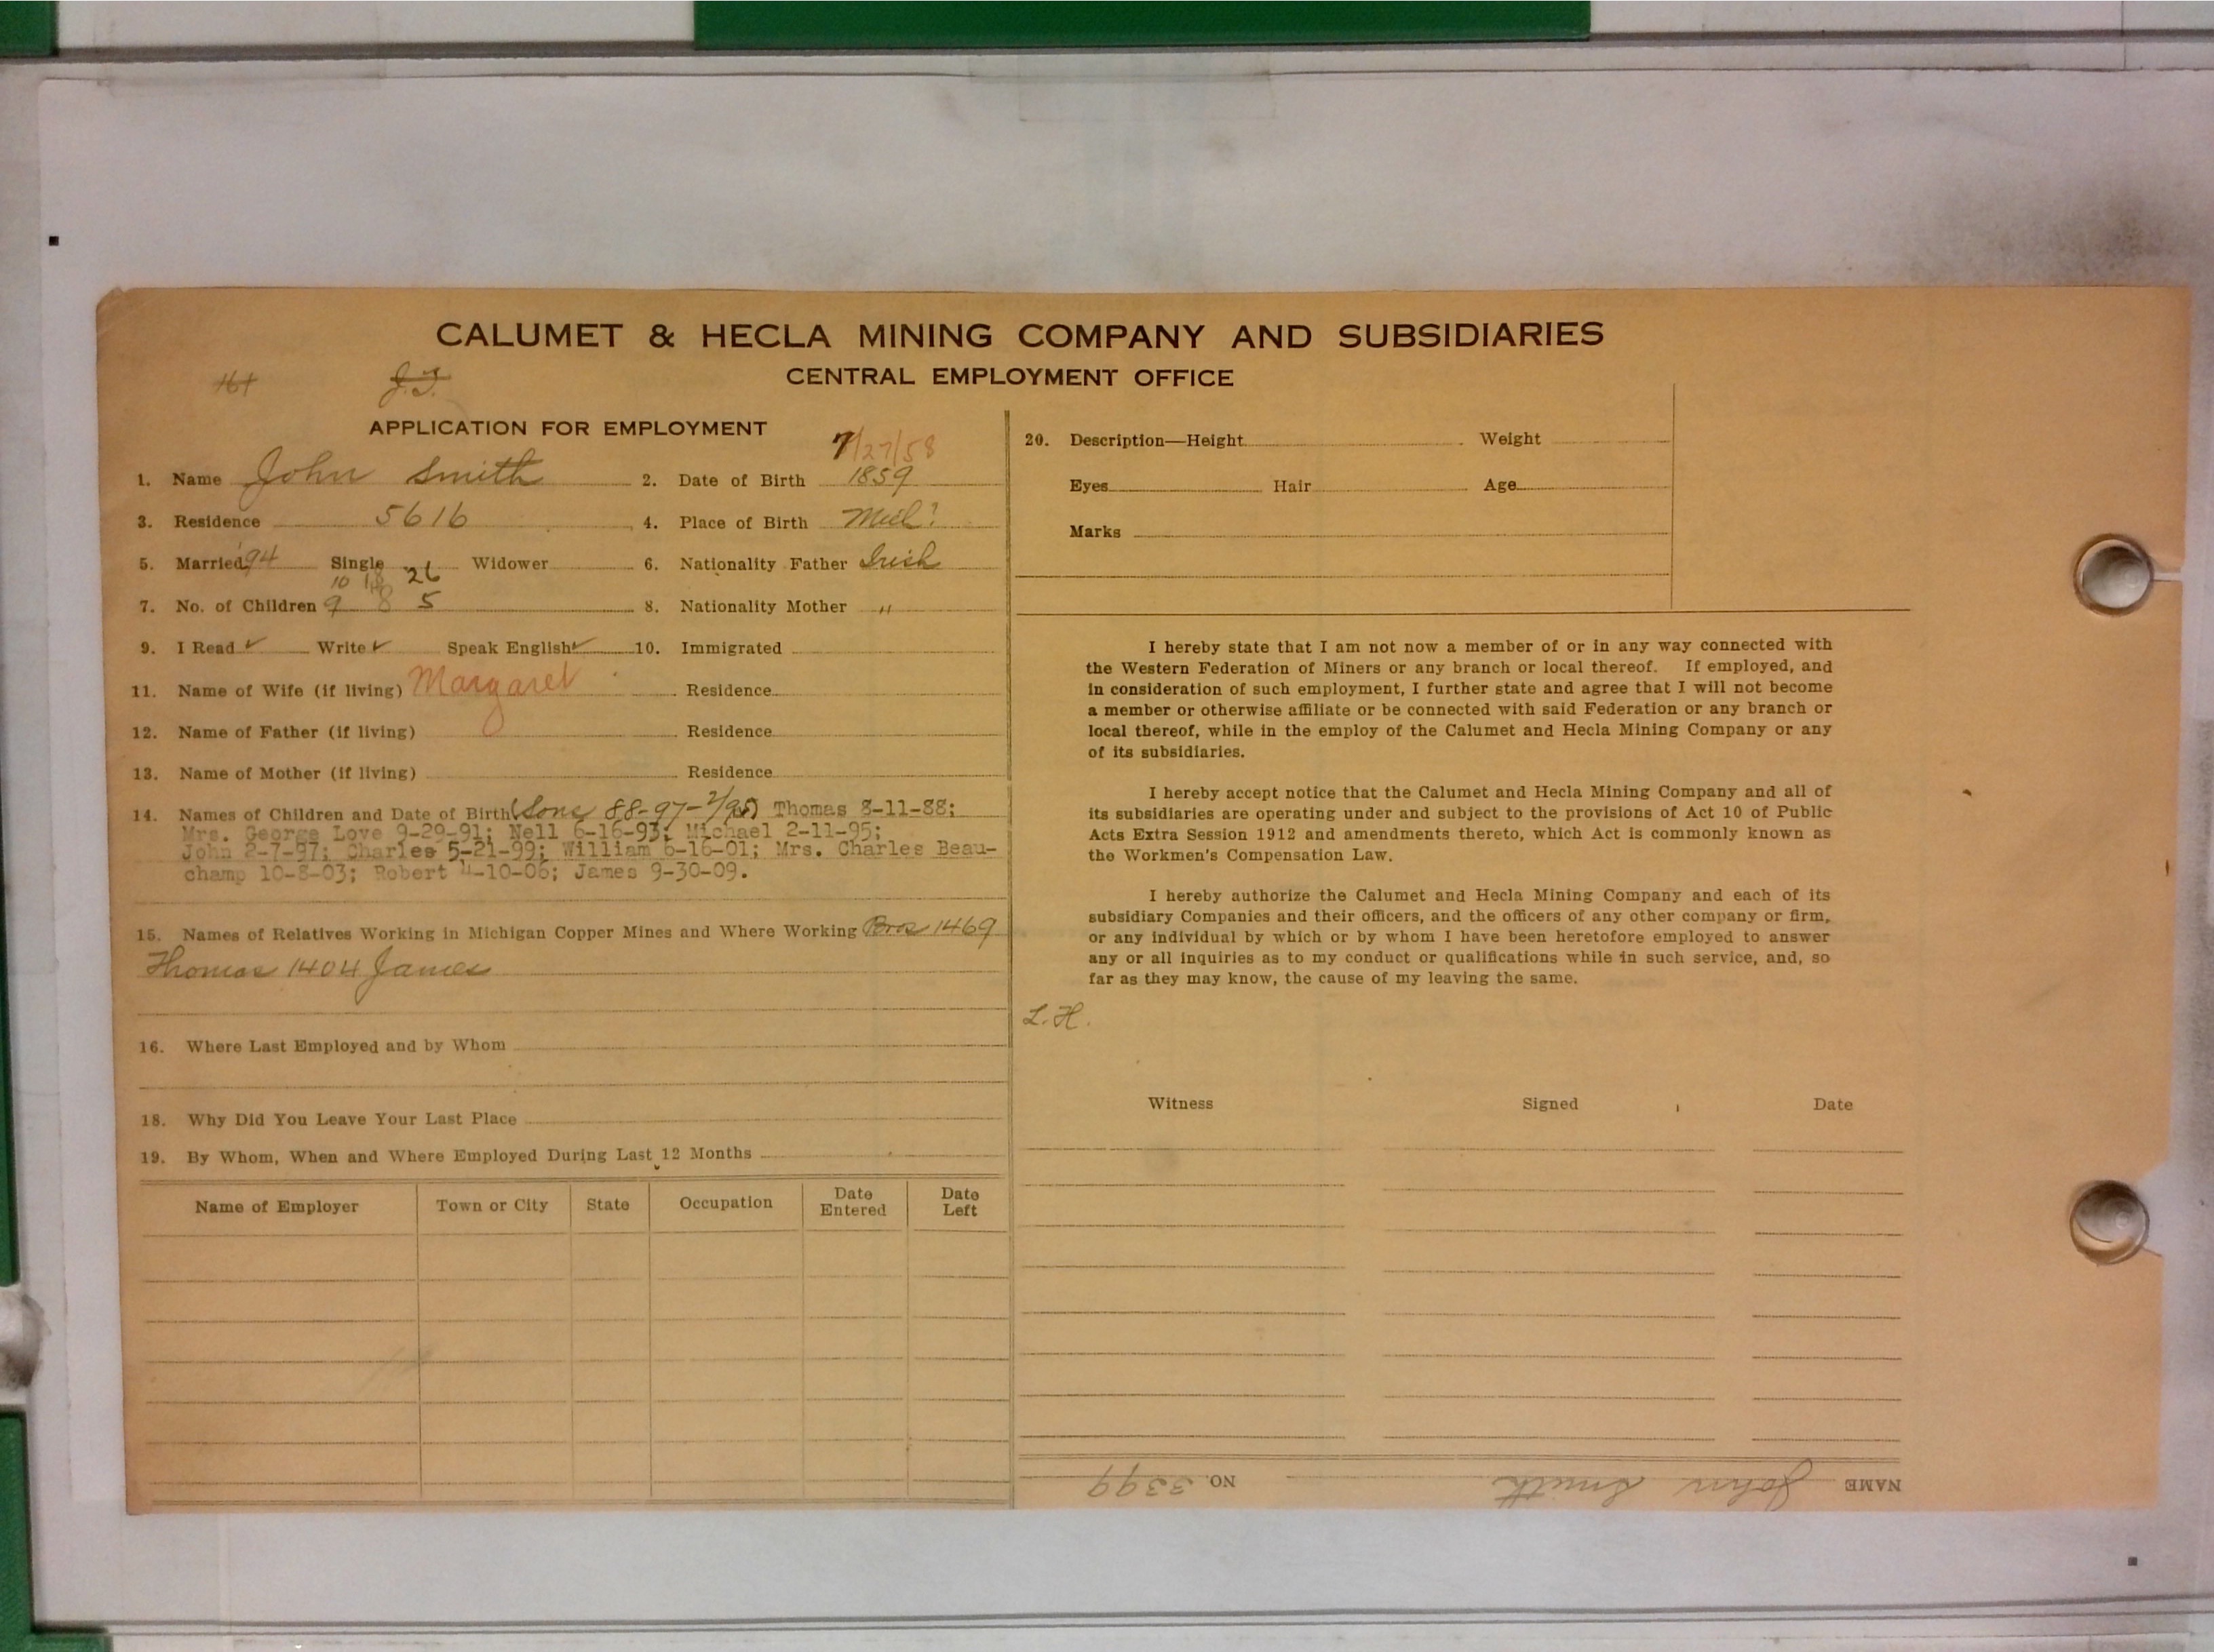 CALUMET & HECLA MINING COMPANY AND SUBSIDIARIES
CENTRAL EMPLOYMENT OFFICE
161 J.T.
APPLICATION FOR EMPLOYMENT
7/27/58
1. Name John Smith 2. Date of Birth 1859
3. Residence 5616 4. Place of Birth
5. Married 94 Single Widower 6. Nationality Father Irish
10 26
7. No. of Children 9 8 5 8. Nationality Mother "
9. I Read ✓ Write ✓ Speak English ✓ 10. Immigrated
11. Name of Wife (if living) Margaret Residence
12. Name of Father (if living) Residence
13. Name of Mother (if living) Residence
14. Names of Children and Date of Birth (Sons 88-97-2/95) Thomas 8-11-88;
Mrs. George Love 9-29-91; Nell 6-16-93; Michael 2-11-95;
John 2-7-97; Charles 5-21-99; William 6-16-01; Mrs. Charles Beau-
champ 10-8-03; Robert 4-10-06; James 9-30-09.
15. Names of Relatives Working in Michigan Copper Mines and Where Working Bros 1469
Thomas 1404 James
16. Where Last Employed and by Whom
18. Why Did You Leave Your Last Place
19. By Whom, When and Where Employed During Last 12 Months
Name of Employer Town or City State Occupation Date Entered Date Left
20. Description—Height Weight
Eyes Hair Age
Marks
I hereby state that I am not now a member of or in any way connected with
the Western Federation of Miners or any branch or local thereof. If employed, and
in consideration of such employment, I further state and agree that I will not become
a member or otherwise affiliate or be connected with said Federation or any branch or
local thereof, while in the employ of the Calumet and Hecla Mining Company or any
of its subsidiaries.
I hereby accept notice that the Calumet and Hecla Mining Company and all of
its subsidiaries are operating under and subject to the provisions of Act 10 of Public
Acts Extra Session 1912 and amendments thereto, which Act is commonly known as
the Workmen's Compensation Law.
I hereby authorize the Calumet and Hecla Mining Company and each of its
subsidiary Companies and their officers, and the officers of any other company or firm,
or any individual by which or by whom I have been heretofore employed to answer
any or all inquiries as to my conduct or qualifications while in such service, and, so
far as they may know, the cause of my leaving the same.
L.H.
Witness Signed Date
NAME John Smith NO. 3399